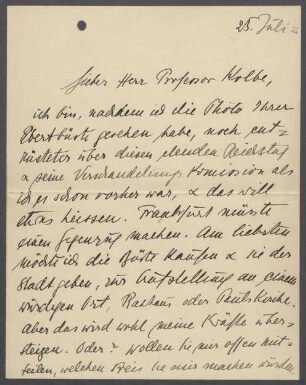 25. Juli 25
Lieber Herr Professor Kolbe,
ich bin, nachdem ich die Photo Ihrer
Ebertbüste gesehen habe, noch ent-
rüsteter über diesen elenden Reichstag
& seine Verschandelungskomission als
ich es schon vorher war, & das will
etwas heissen. Frankfurt müsste
einen Gegenzug machen. Am liebsten
möchte ich die Büste kaufen & sie der
Stadt geben, zur Aufstellung an einem
würdigen Ort, Rathaus oder Paulskirche.
Aber das wird wohl meine Kräfte über-
steigen. Oder? Wollen Sie mir offen mit-
teilen, welchen Preis Sie mir machen würden